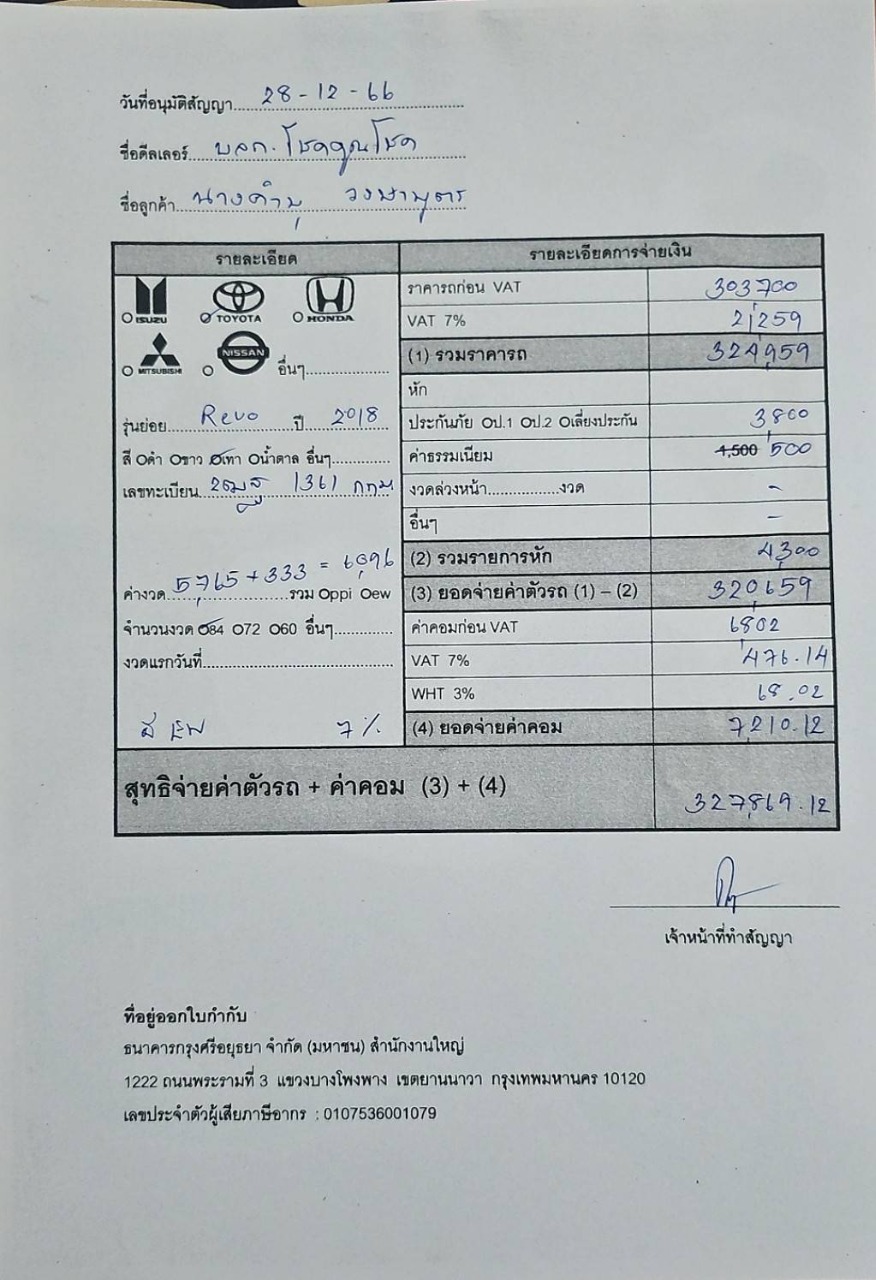 วันที่อนุมัติสัญญา 28-12-66
ชื่อดีลเลอร์ บลก. โชคคูณโชค
ชื่อลูกค้า นางคำนุ
รายละเอียด
ISUZU TOYOTA HONDA
MITSUBISHI NISSAN อื่นๆ
รุ่นย่อย Revo ปี 2018
สี ดำ ขาว เทา น้ำตาล อื่นๆ
เลขทะเบียน 1361 กทม
ค่างวด 5,765 + 333 = 6,096 รวม ppi ew
จำนวนงวด 84 72 60 อื่นๆ
งวดแรกวันที่
7 %
รายละเอียดการจ่ายเงิน
ราคารถก่อน VAT 303,700
VAT 7% 21,259
(1) รวมราคารถ 324,959
หัก
ประกันภัย ป.1 ป.2 เลี่ยงประกัน 3,800
ค่าธรรมเนียม 4,500 500
งวดล่วงหน้า................งวด -
อื่นๆ -
(2) รวมรายการหัก 4,300
(3) ยอดจ่ายค่าตัวรถ (1) – (2) 320,659
ค่าคอมก่อน VAT 6802
VAT 7% 476.14
WHT 3% 68.02
(4) ยอดจ่ายค่าคอม 7,210.12
สุทธิจ่ายค่าตัวรถ + ค่าคอม (3) + (4) 327,869.12
เจ้าหน้าที่ทำสัญญา
ที่อยู่ออกใบกำกับ
ธนาคารกรุงศรีอยุธยา จำกัด (มหาชน) สำนักงานใหญ่
1222 ถนนพระรามที่ 3 แขวงบางโพงพาง เขตยานนาวา กรุงเทพมหานคร 10120
เลขประจำตัวผู้เสียภาษีอากร : 0107536001079